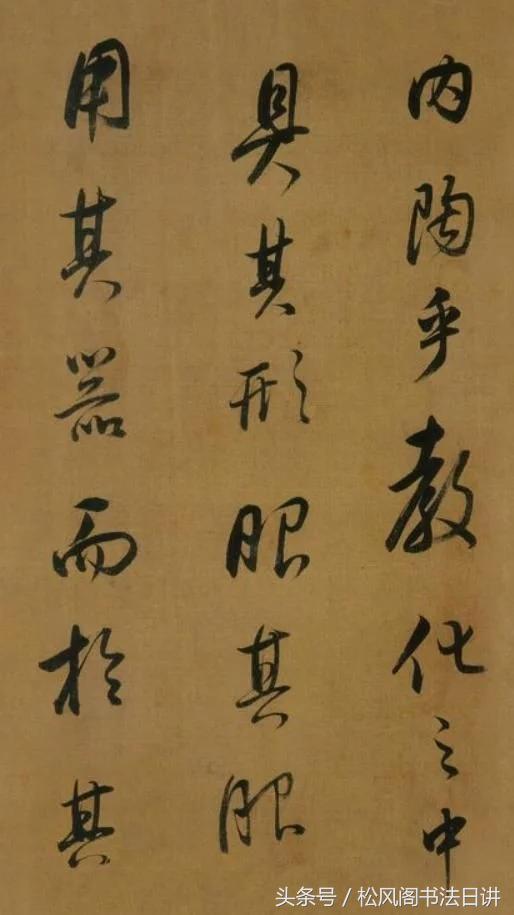 内陶乎教化之中
具其形服其服
用其器而於其
头条号／松风阁书法日讲